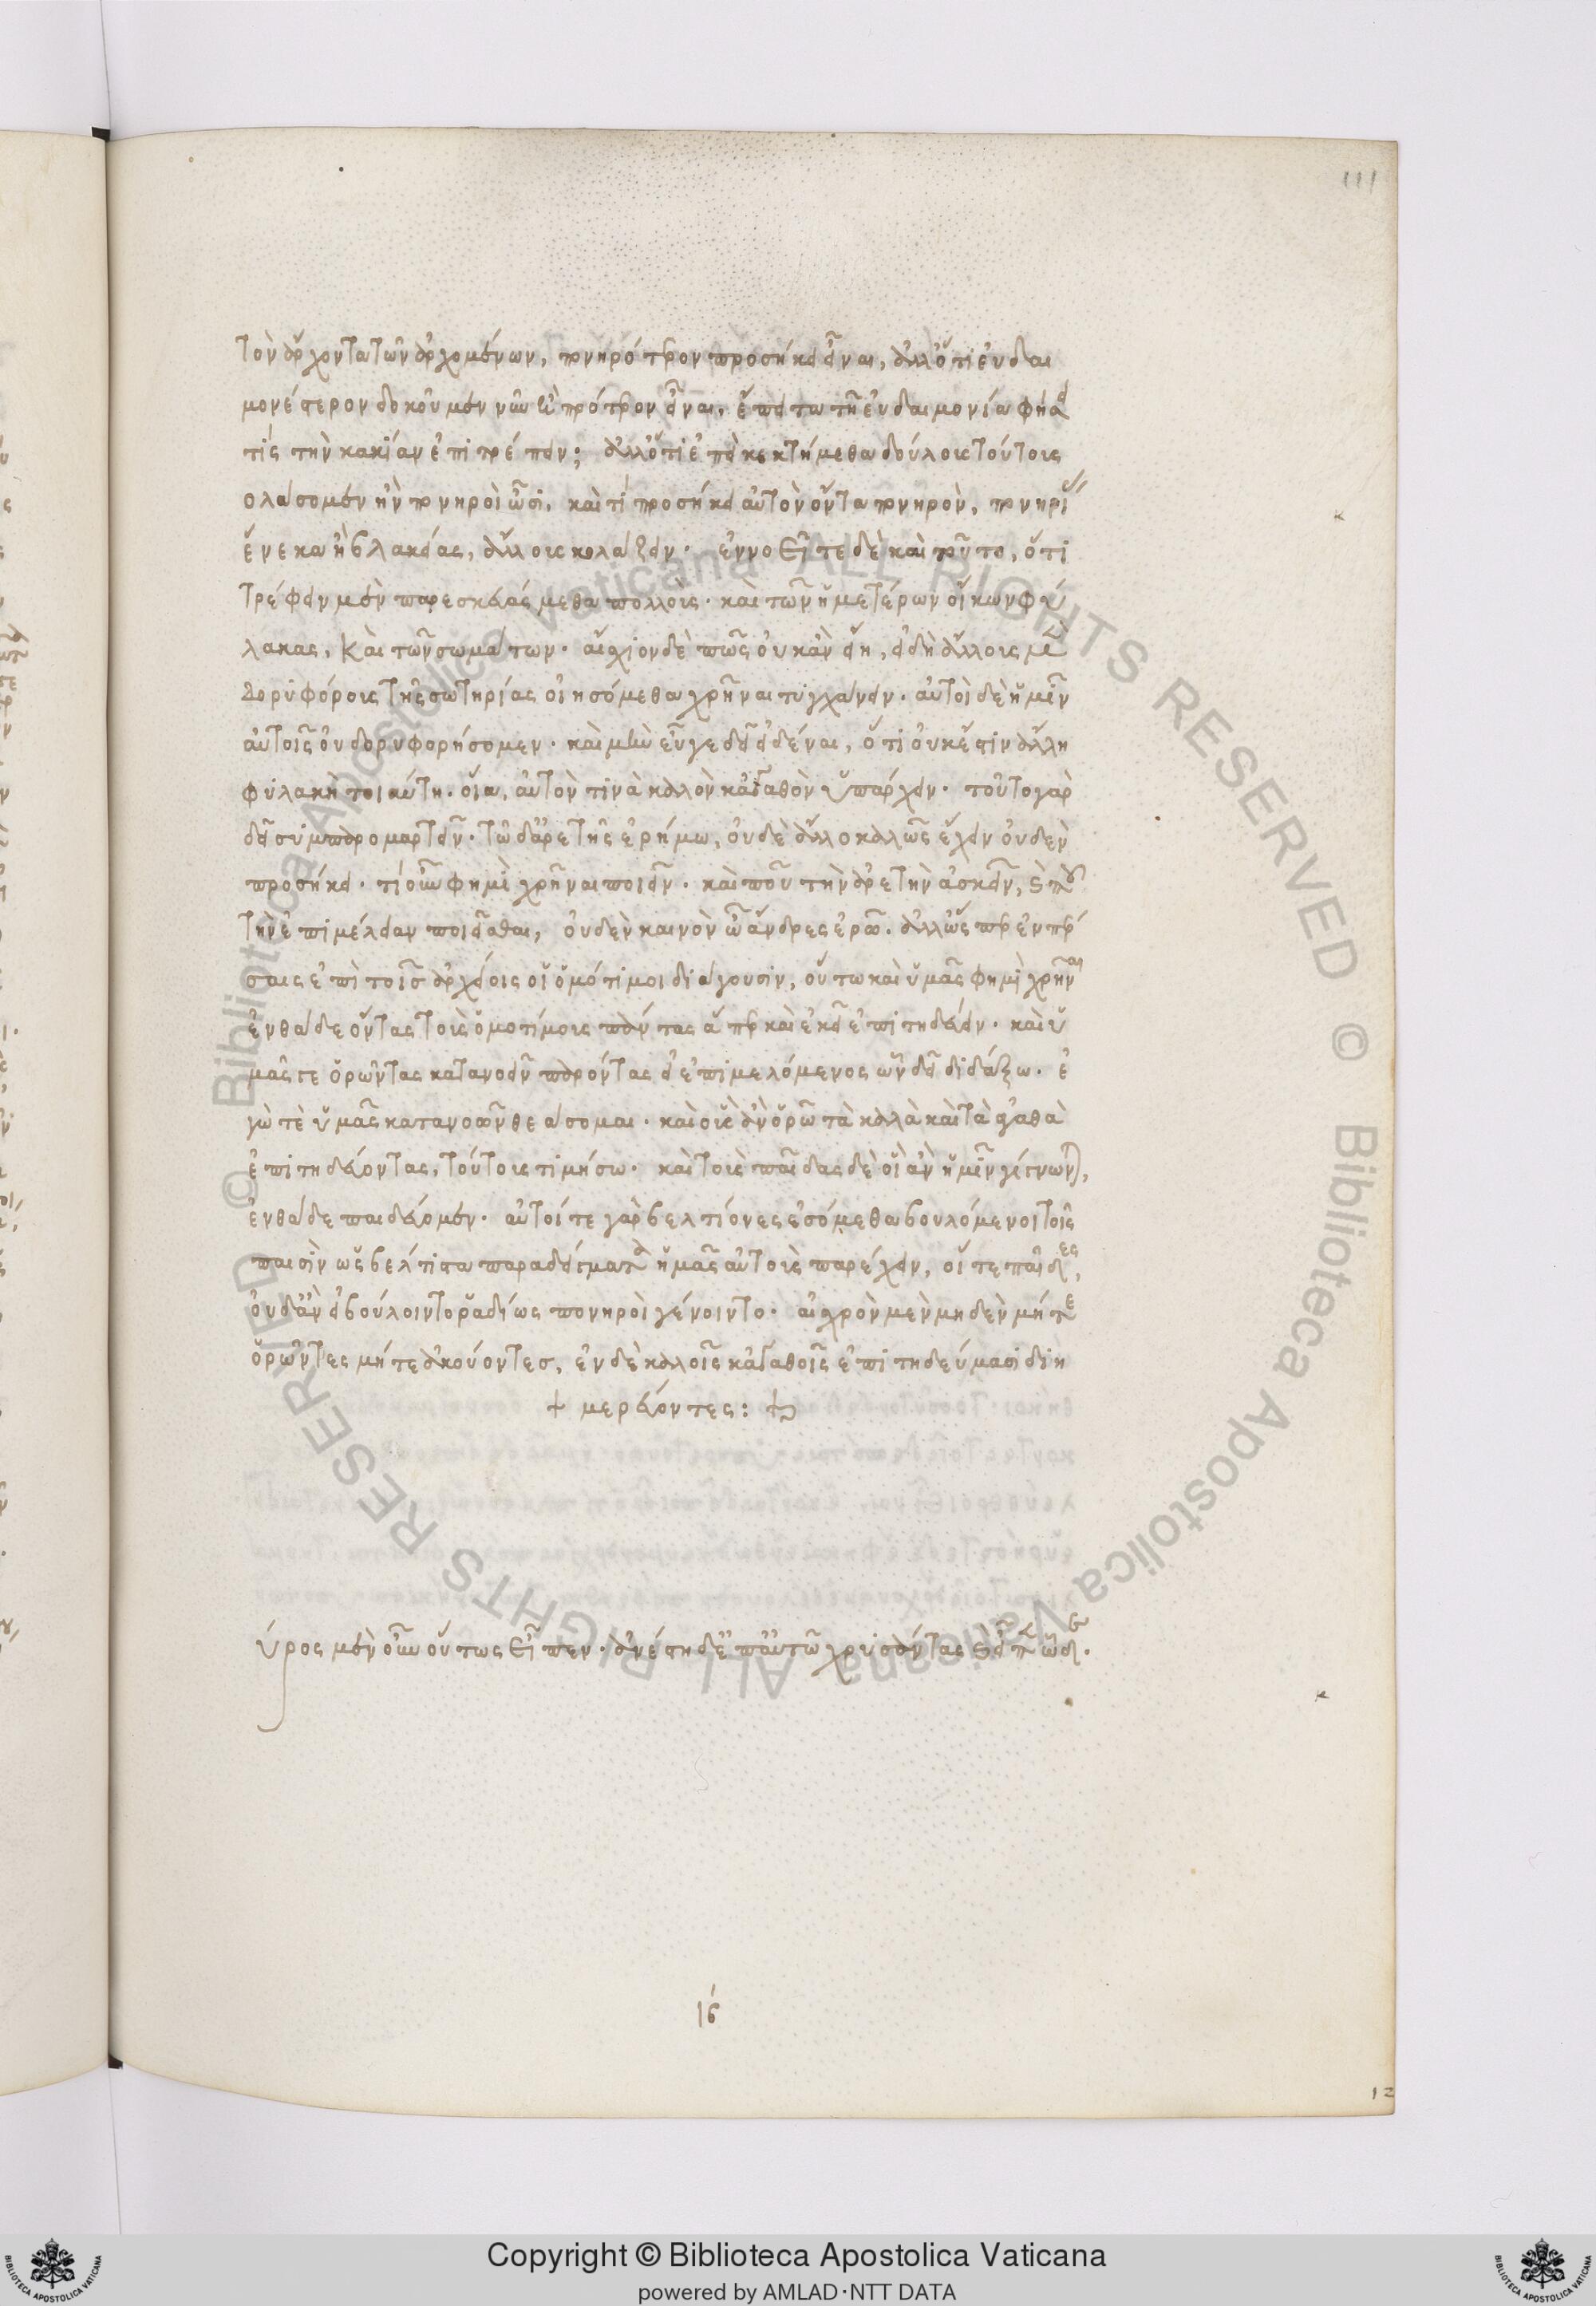 111
τὸν ἄρχοντα τῶν ἀρχομένων, πονηρότερον προσήκει εἶναι, ἀλλ' ὅτι εὐδαι
μονέστερον δοκοῦμεν νῦν ἢ πρότερον εἶναι, ἔπειτα τῇ εὐδαιμονία φήσει
τίς τὴν κακίαν ἐπιτρέπειν; ἀλλ' ὅτι ἐπεὶ κεκτήμεθα δούλους τούτους
ολάσομεν ἢν πονηροὶ ὦσι, καὶ τί προσήκει αὐτὸν ὄντα πονηρὸν, πονηρί
ἕνεκα ἢ βλακείας, ἄλλους κολάζειν. ἐννοεῖτε δὲ καὶ τοῦτο, ὅτι
τρέφειν μὲν παρεσκευάσμεθα πολλοὺς. καὶ τῶν ἡμετέρων οἴκων φύ
λακας, καὶ τῶν σωμάτων. αἴσχιον δὲ πῶς οὐκ ἂν εἴη, εἰ δὴ ἄλλους μὲν
δορυφόρους τῆς σωτηρίας οἰησόμεθα χρῆναι τυγχάνειν. αὐτοὶ δὲ ἡμῖν
αὐτοῖς οὐ δορυφορήσομεν. καὶ μὴν εὖ γε δεῖ εἰδέναι, ὅτι οὐκ ἔστιν ἄλλη
φυλακὴ τοιαύτη. οἵα, αὐτόν τινὰ καλὸν κἀγαθὸν ὑπάρχειν. τοῦτο γὰρ
δεῖ συμπαρομαρτεῖν. τῶ δ' ἀρετῆς ἐρήμω, οὐδὲ ἄλλο καλῶς ἔχειν οὐδὲν
προσήκει. τί οὖν φημὶ χρῆναι ποιεῖν. καὶ ποῦ τὴν ἀρετὴν ἀσκεῖν, καὶ ποῦ
τὴν ἐπιμέλειαν ποιεῖσθαι, οὐδὲν καινὸν ὦ ἄνδρες ἐρῶ. ἀλλ' ὥσπερ ἐν πέρ
σαις ἐπὶ τοῖς ἀρχείοις οἱ ὁμότιμοι διάγουσιν, οὕτω καὶ ὑμᾶς φημὶ χρῆναι
ἐνθάδε ὄντας τοὺς ὁμοτίμους πάντας ἅπερ καὶ ἐκεῖ ἐπιτηδεύειν. καὶ ὑ
μᾶς τε ὁρῶντας κατανοεῖν παρόντας εἰ ἐπιμελόμενος ὧν δεῖ διάξω. ἐ
γώ τὲ ὑμᾶς κατανοῶν θεάσομαι. καὶ οὓς ἂν ὁρῶ τὰ καλὰ καὶ τὰ ἀγαθὰ
ἐπιτηδεύοντας, τούτους τιμήσω. καὶ τοὺς παῖδας δὲ οἳ ἂν ἡμῖν γίγνωνται,
ἐνθάδε παιδεύομεν. αὐτοί τε γὰρ βελτίονες ἐσόμεθα βουλόμενοι τοῖς
παισὶν ὡς βέλτιστα παραδείγματα ἡμᾶς αὐτοὺς παρέχειν, οἵ τε παῖδες,
οὐδ' ἂν εἰ βούλοιντο ῥαδίως πονηροὶ γένοιντο. αἰσχρὸν μὲν μηδὲν μήτε
ὁρῶντες μήτε ἀκούοντες, ἐν δὲ καλοῖς κἀγαθοῖς ἐπιτηδεύμασι διη
+ μερεύοντες: +
ῦρος μὲν οὖν οὕτως εἶπεν. ἀνέστη δ' ἐπ' αὐτῶ χρυσάντας καὶ εἶπεν ὧδε.
ιϛ
12
Copyright © Biblioteca Apostolica Vaticana
powered by AMLAD·NTT DATA